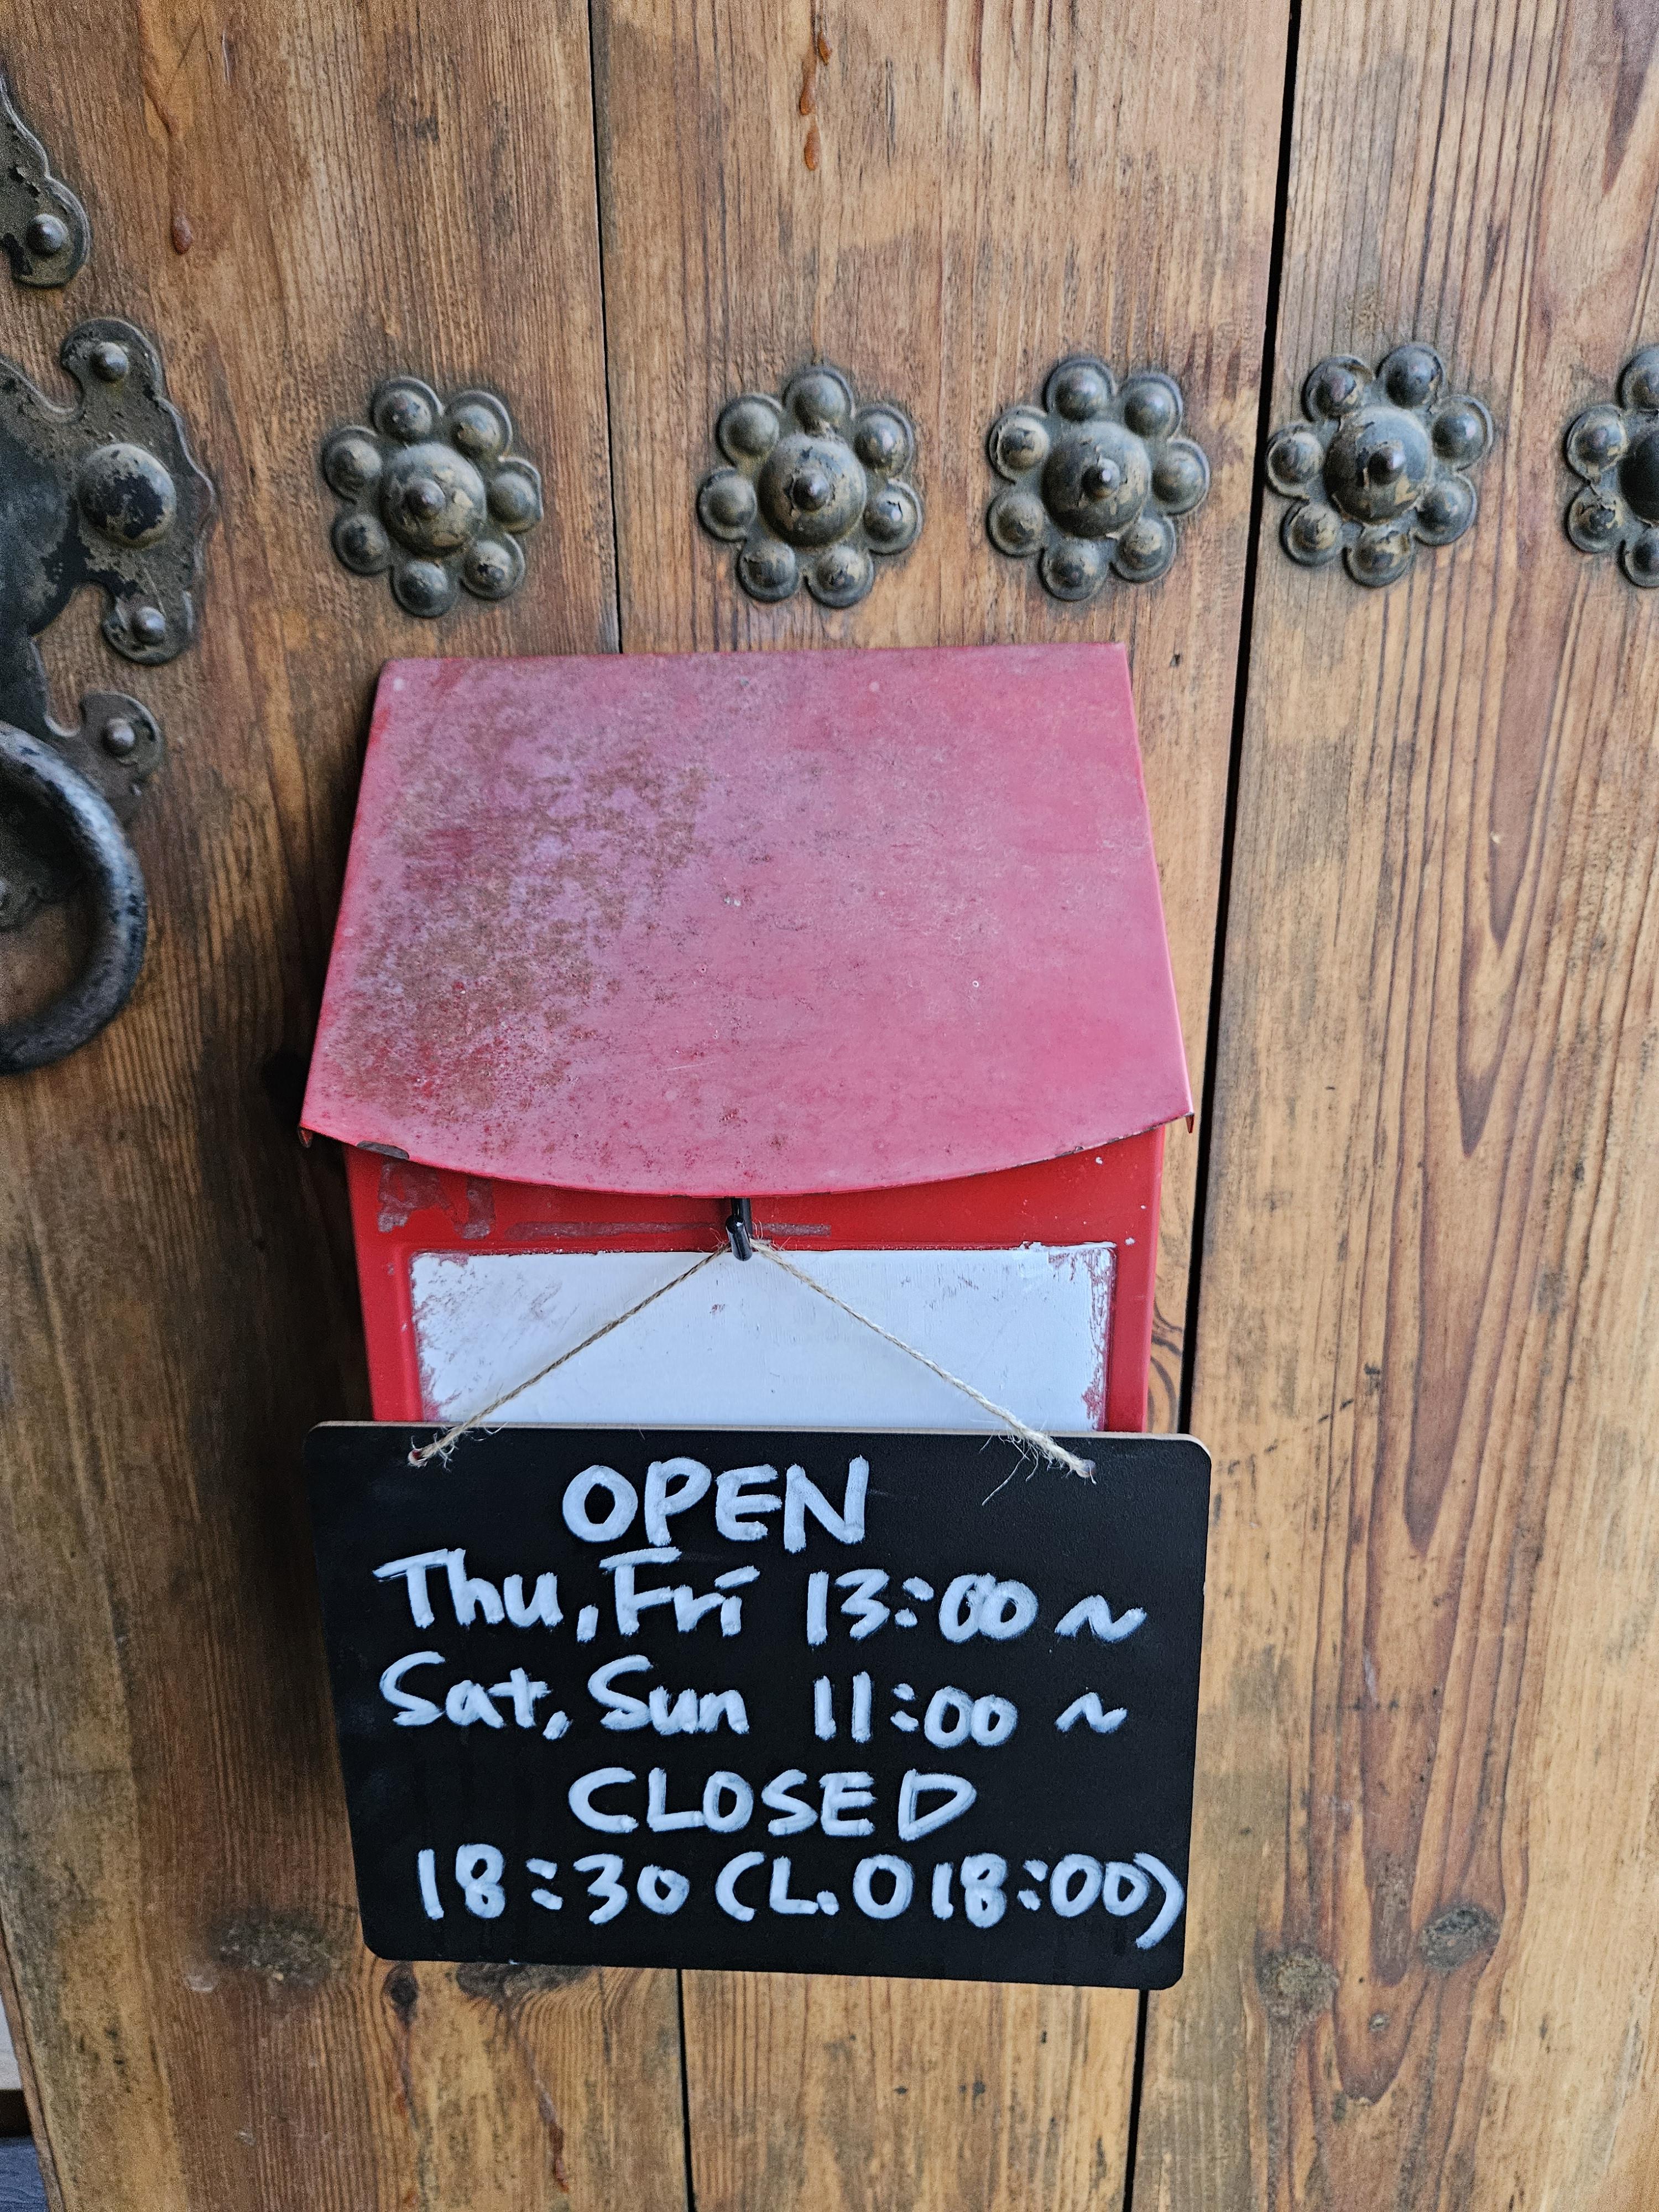 OPEN
Thu, Fri 13:00 ~
Sat, Sun 11:00 ~
CLOSED
18:30 (L.O 18:00)